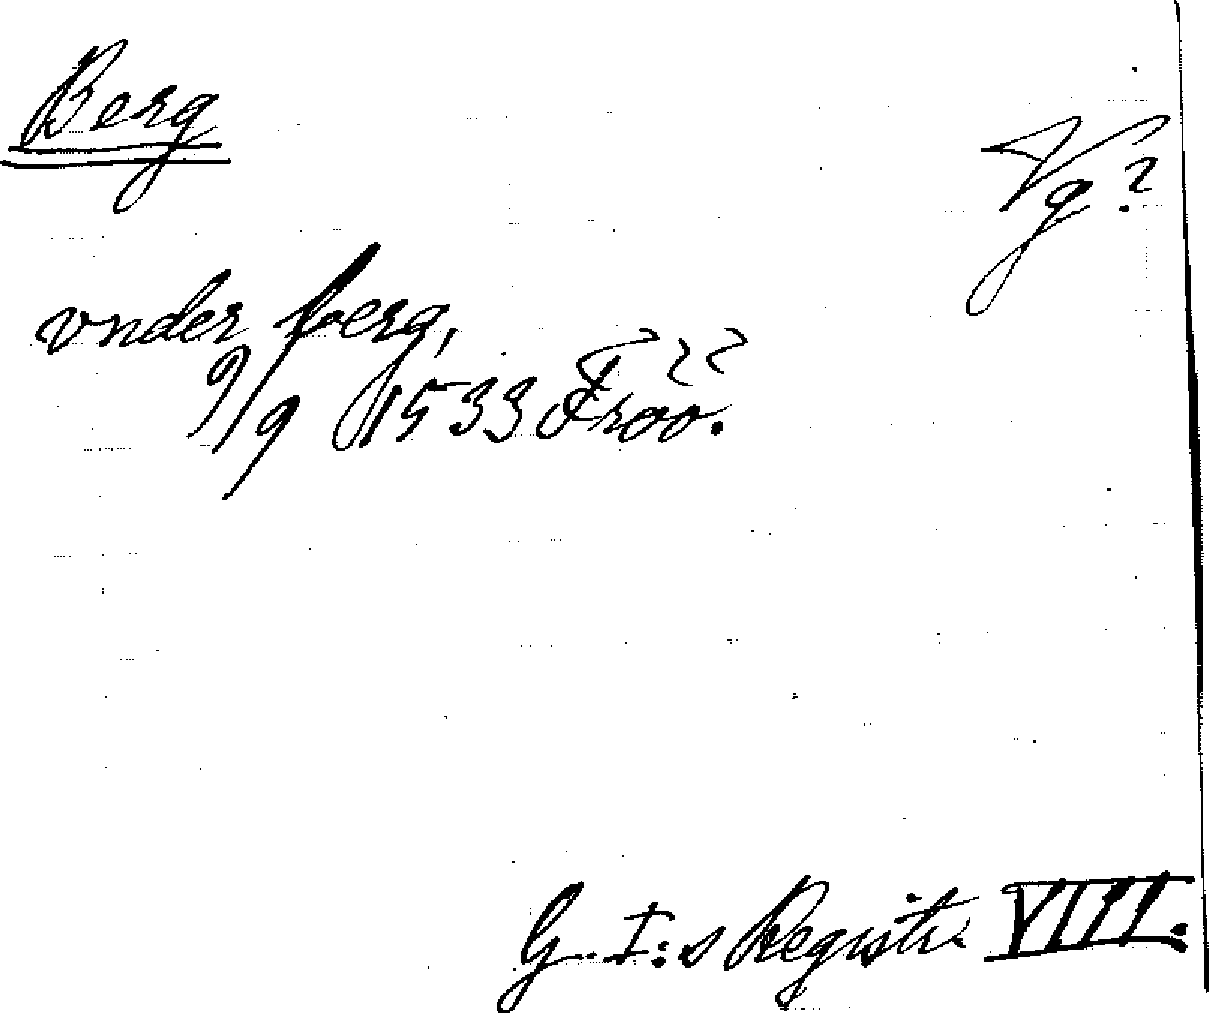 Berg
Vg?
vnder berg,
9/9 1533 Froo.
G. I:s Registr. VIII.